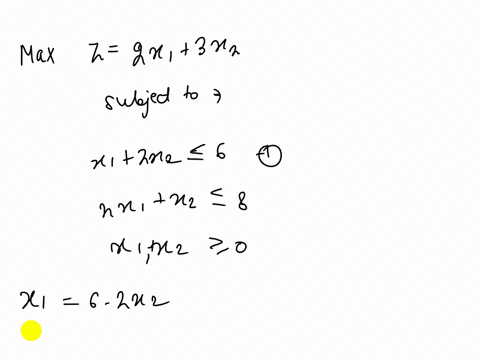 Max Z = 2x₁ + 3x₂
subject to →
x₁ + 2x₂ ≤ 6 ①
2x₁ + x₂ ≤ 8
x₁, x₂ ≥ 0
x₁ = 6 - 2x₂